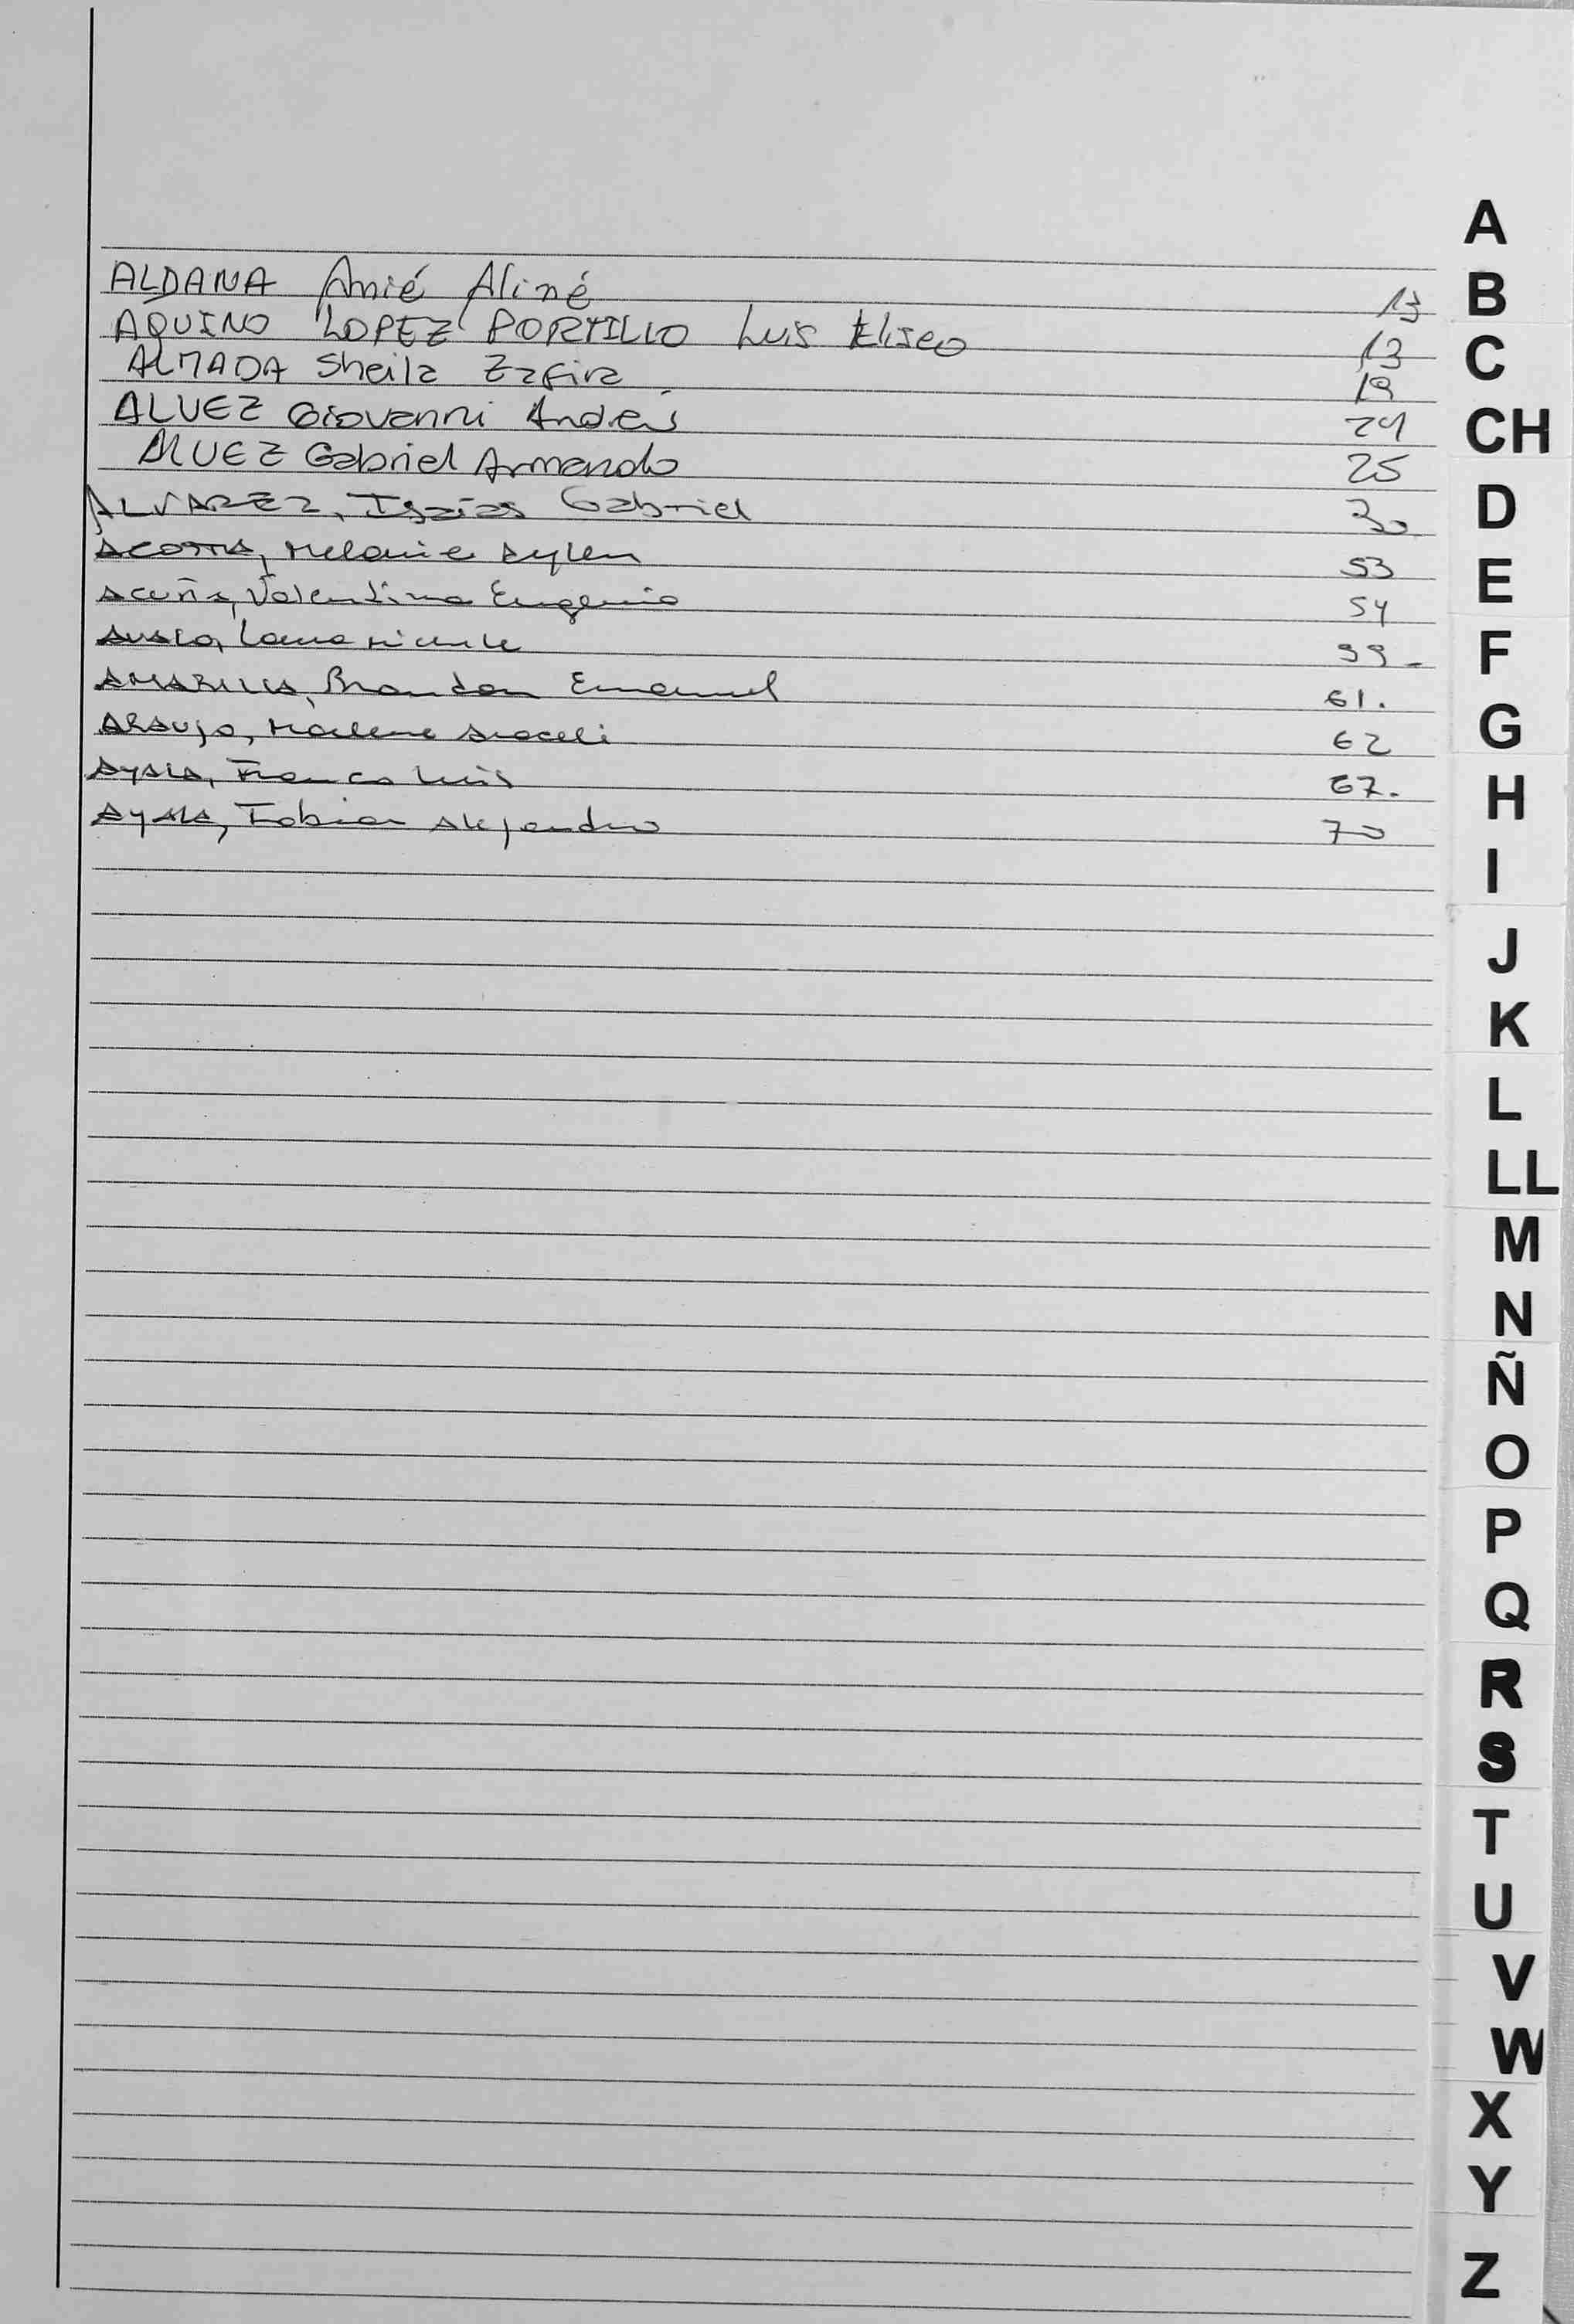 ALDANA Amié Aliné 13
AQUINO LOPEZ PORTILLO Luis Eliseo 13
ALMADA Sheila Zafira 19
ALVEZ Giovanni Andrés 24
ALVEZ Gabriel Armando 25
ALVAREZ, Isaías Gabriel 30
ACOSTA, Melanie Aylen 53
Acuña, Valentina Eugenia 54
Laura
AMARILLA, Brandon Emanuel 61.
ARAUJO, Marlene Araceli 62
AYALA, Franco Luis 67.
AYALA, Fabian Alejandro 70
A
B
C
CH
D
E
F
G
H
I
J
K
L
LL
M
N
Ñ
O
P
Q
R
S
T
U
V
W
X
Y
Z